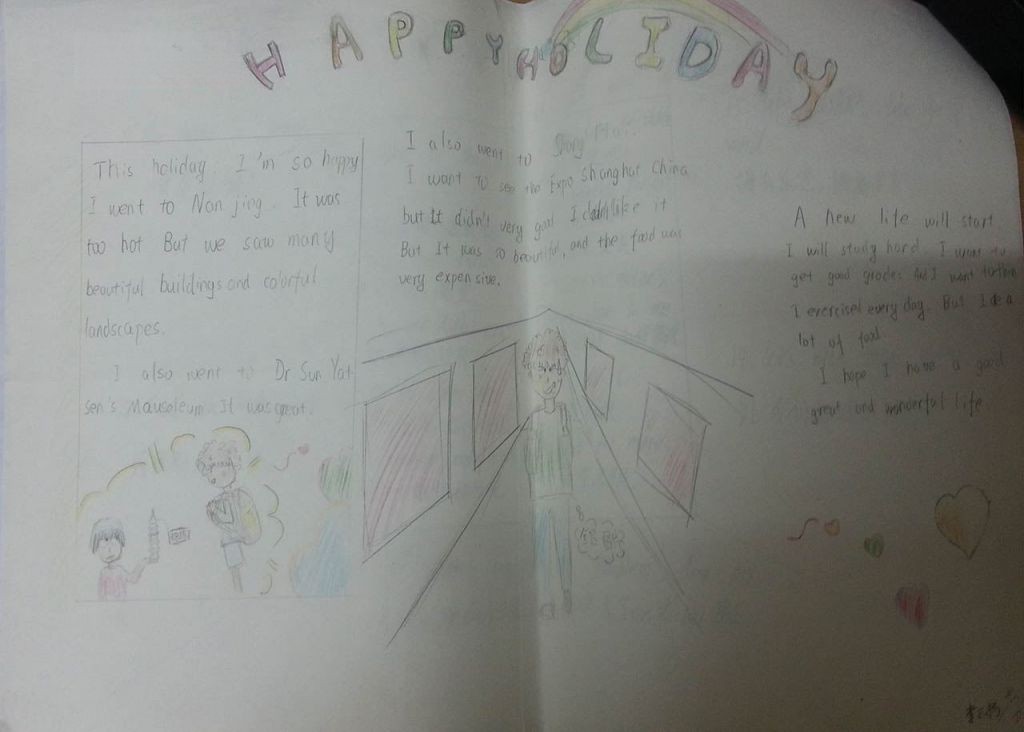 HAPPY HOLIDAY
This holiday. I'm so happy
I went to Nan jing. It was
too hot But we saw many
beautiful buildings and colorful
landscapes.
I also went to Dr Sun Yat
sen's Mausoleum. It was great.
I also went to Shang Hai.
I want to see the Expo Shanghai China
but It didn't very good I didn't like it
But It was so beautiful, and the food was
very expensive.
A new life will start
I will study hard. I want to
get good grades. And I want to thin
I exercised every day. But I ate a
lot of food.
I hope I have a good
great and wonderful life.